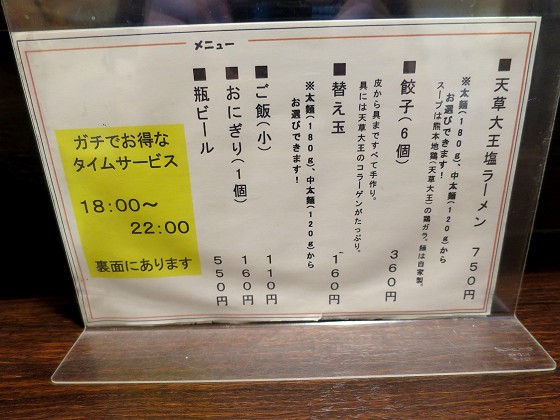 メニュー
■天草大王塩ラーメン 750円
※太麺(180g)、中太麺(120g)から
お選びできます!
スープは熊本地鶏(天草大王)の鶏ガラ。麺は自家製。
■餃子(6個) 360円
皮から具まですべて手作り。
具には天草大王のコラーゲンがたっぷり。
■替え玉 160円
※太麺(180g)、中太麺(120g)から
お選びできます!
■ご飯(小) 110円
■おにぎり(1個) 160円
■瓶ビール 550円
ガチでお得な
タイムサービス
18:00～
22:00
裏面にあります